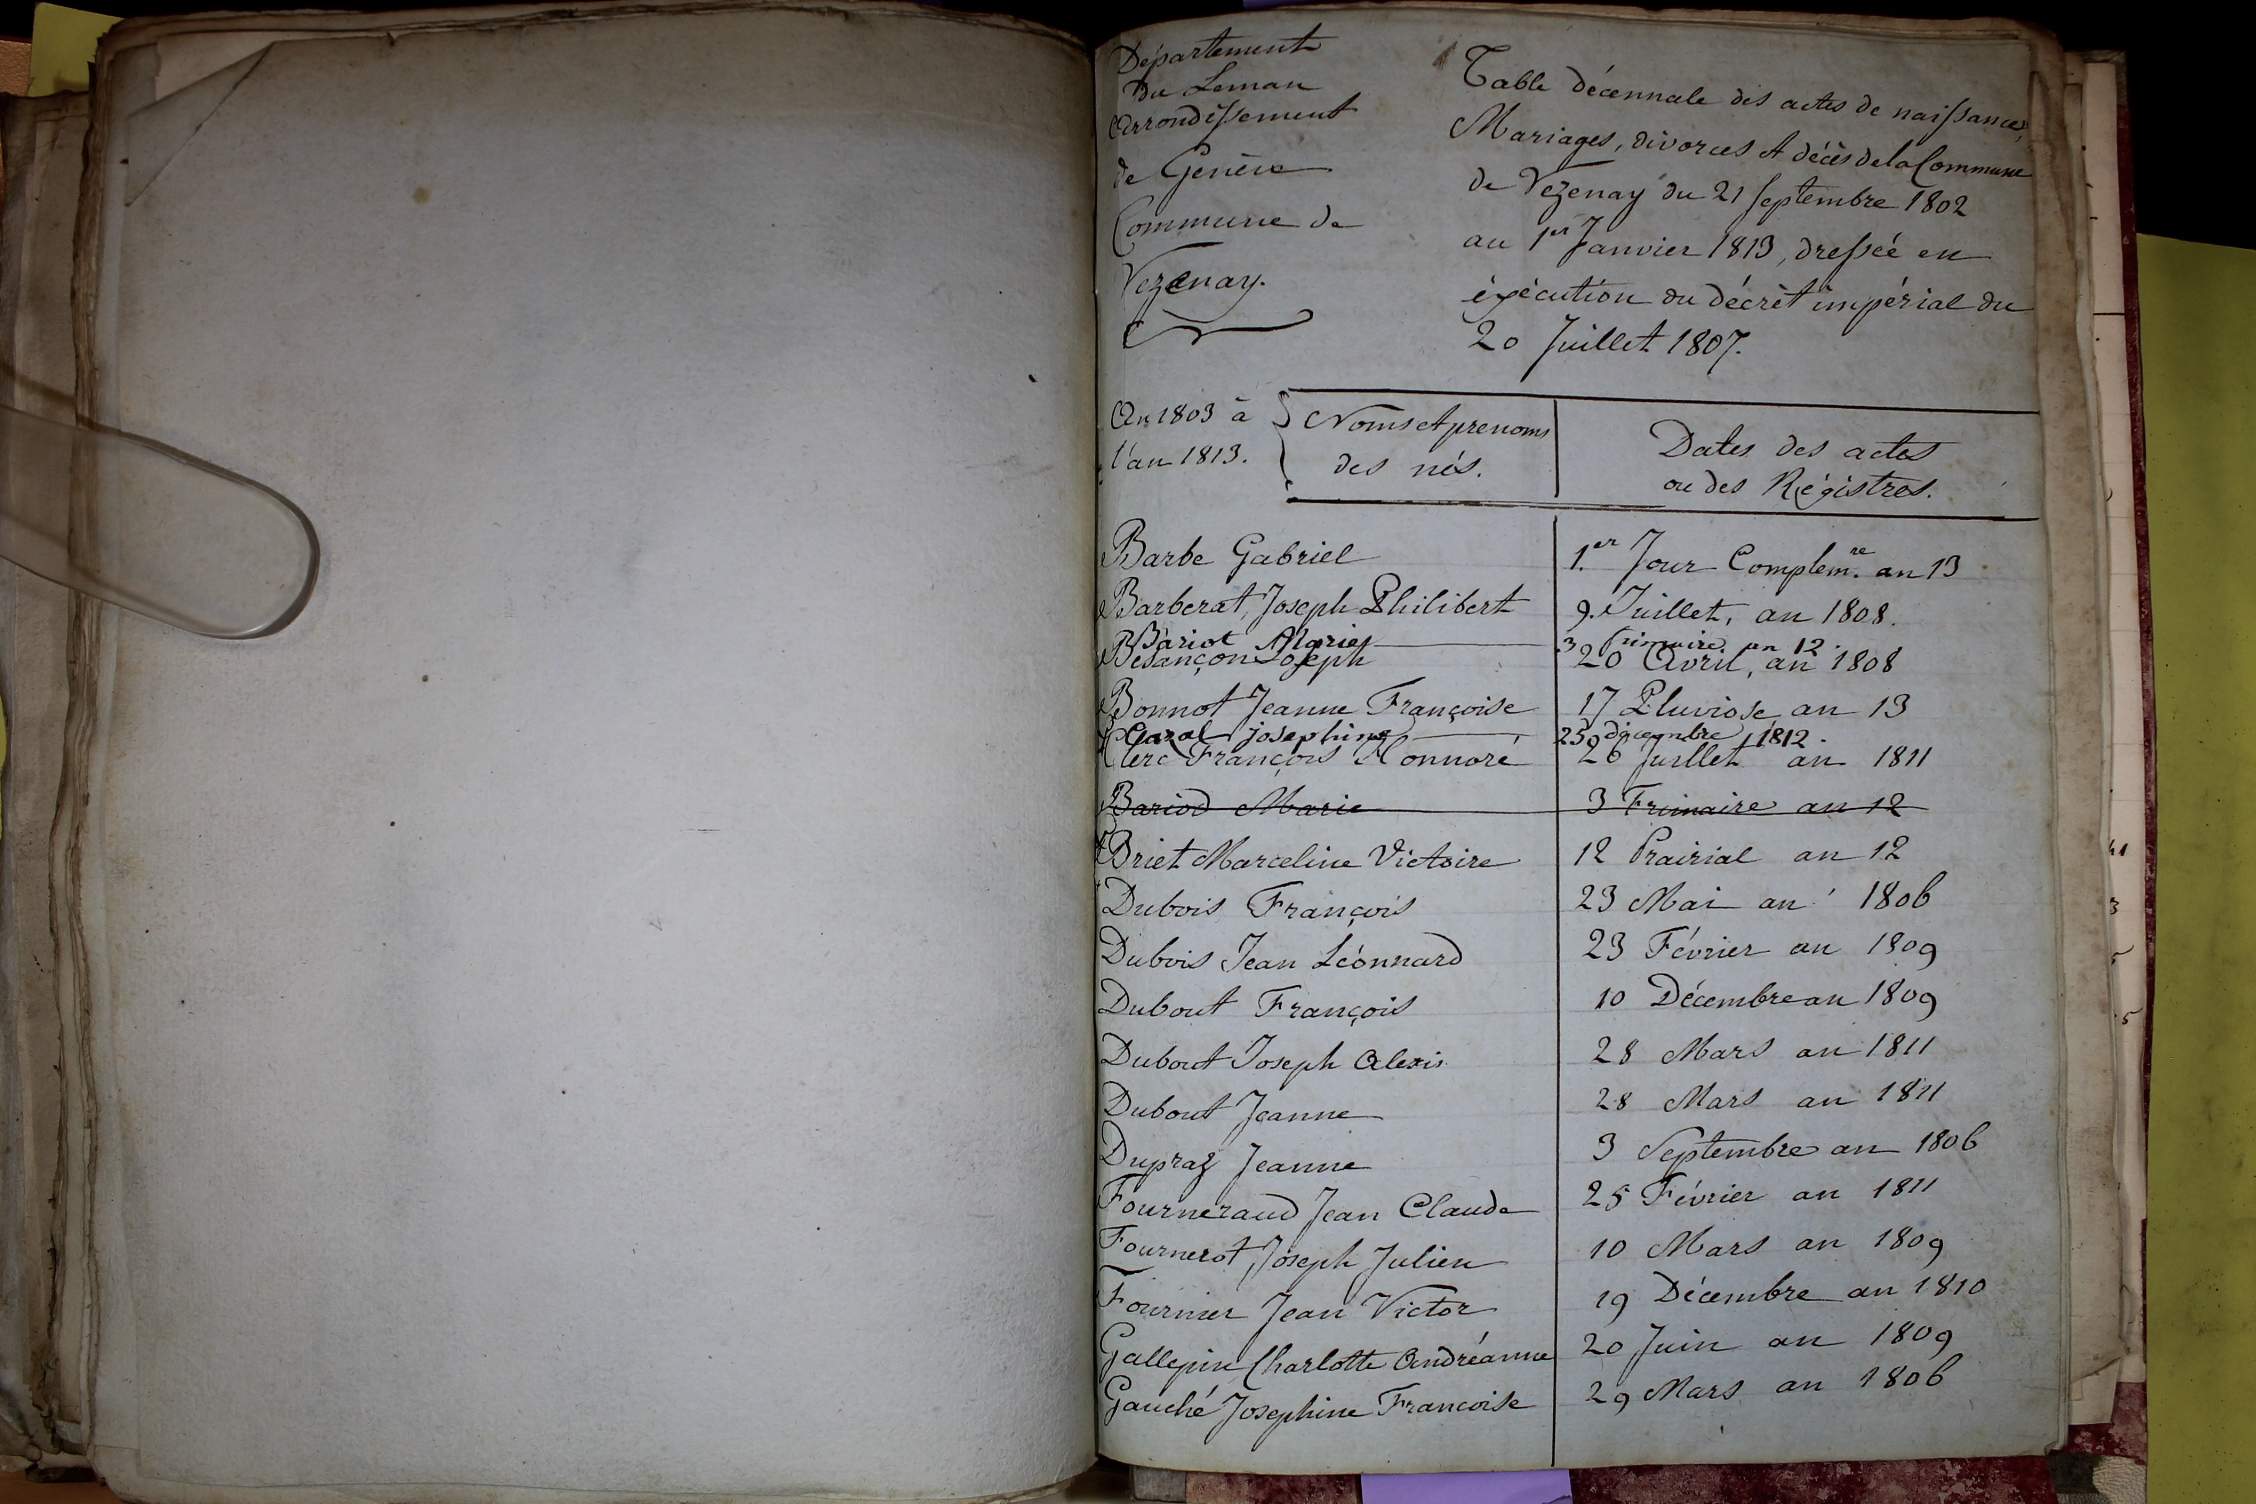 Département
du Leman
Arrondissement
de Genève
Commune de
Vezenay.
Table décennale des actes de naissances,
Mariages, divorces et décès de la Commune
de Vezenay du 21 Septembre 1802
au 1er Janvier 1813, dressée en
éxécution du décrèt impérial du
20 Juillet 1807.
An 1803 à
l'an 1813.
Noms et prenoms
des nés.
Dates des actes
ou des Régistres.
Barbe Gabriel 1.er Jour Complem.re an 13
Barberat, Joseph Philibert 9. Juillet, an 1808.
Bariot Marie 3 frimaire an 12.
Besançon Joseph 20 Avril, an 1808
Bonnot Jeanne Françoise 17 Pluviose an 13
josephine 25 décembre 1812.
Clerc François Honnoré 26 Juillet an 1811
Bariod Marie 3 Frimaire an 12
Briet Marceline Victoire 12 Prairial an 12
Dubois François 23 Mai an 1806
Dubois Jean Léonnard 23 Février an 1809
Dubout François 10 Décembre an 1809
Dubout Joseph Alexis 28 Mars an 1811
Dubout Jeanne 28 Mars an 1811
Dupraz Jeanne 3 Septembre an 1806
Fourneraud Jean Claude 25 Février an 1811
Fournerot, Joseph Julien 10 Mars an 1809
Fournier Jean Victor 19 Décembre an 1810
Gallepin Charlotte Andréanne 20 Juin an 1809
Gauché Josephine Francoise 29 Mars an 1806